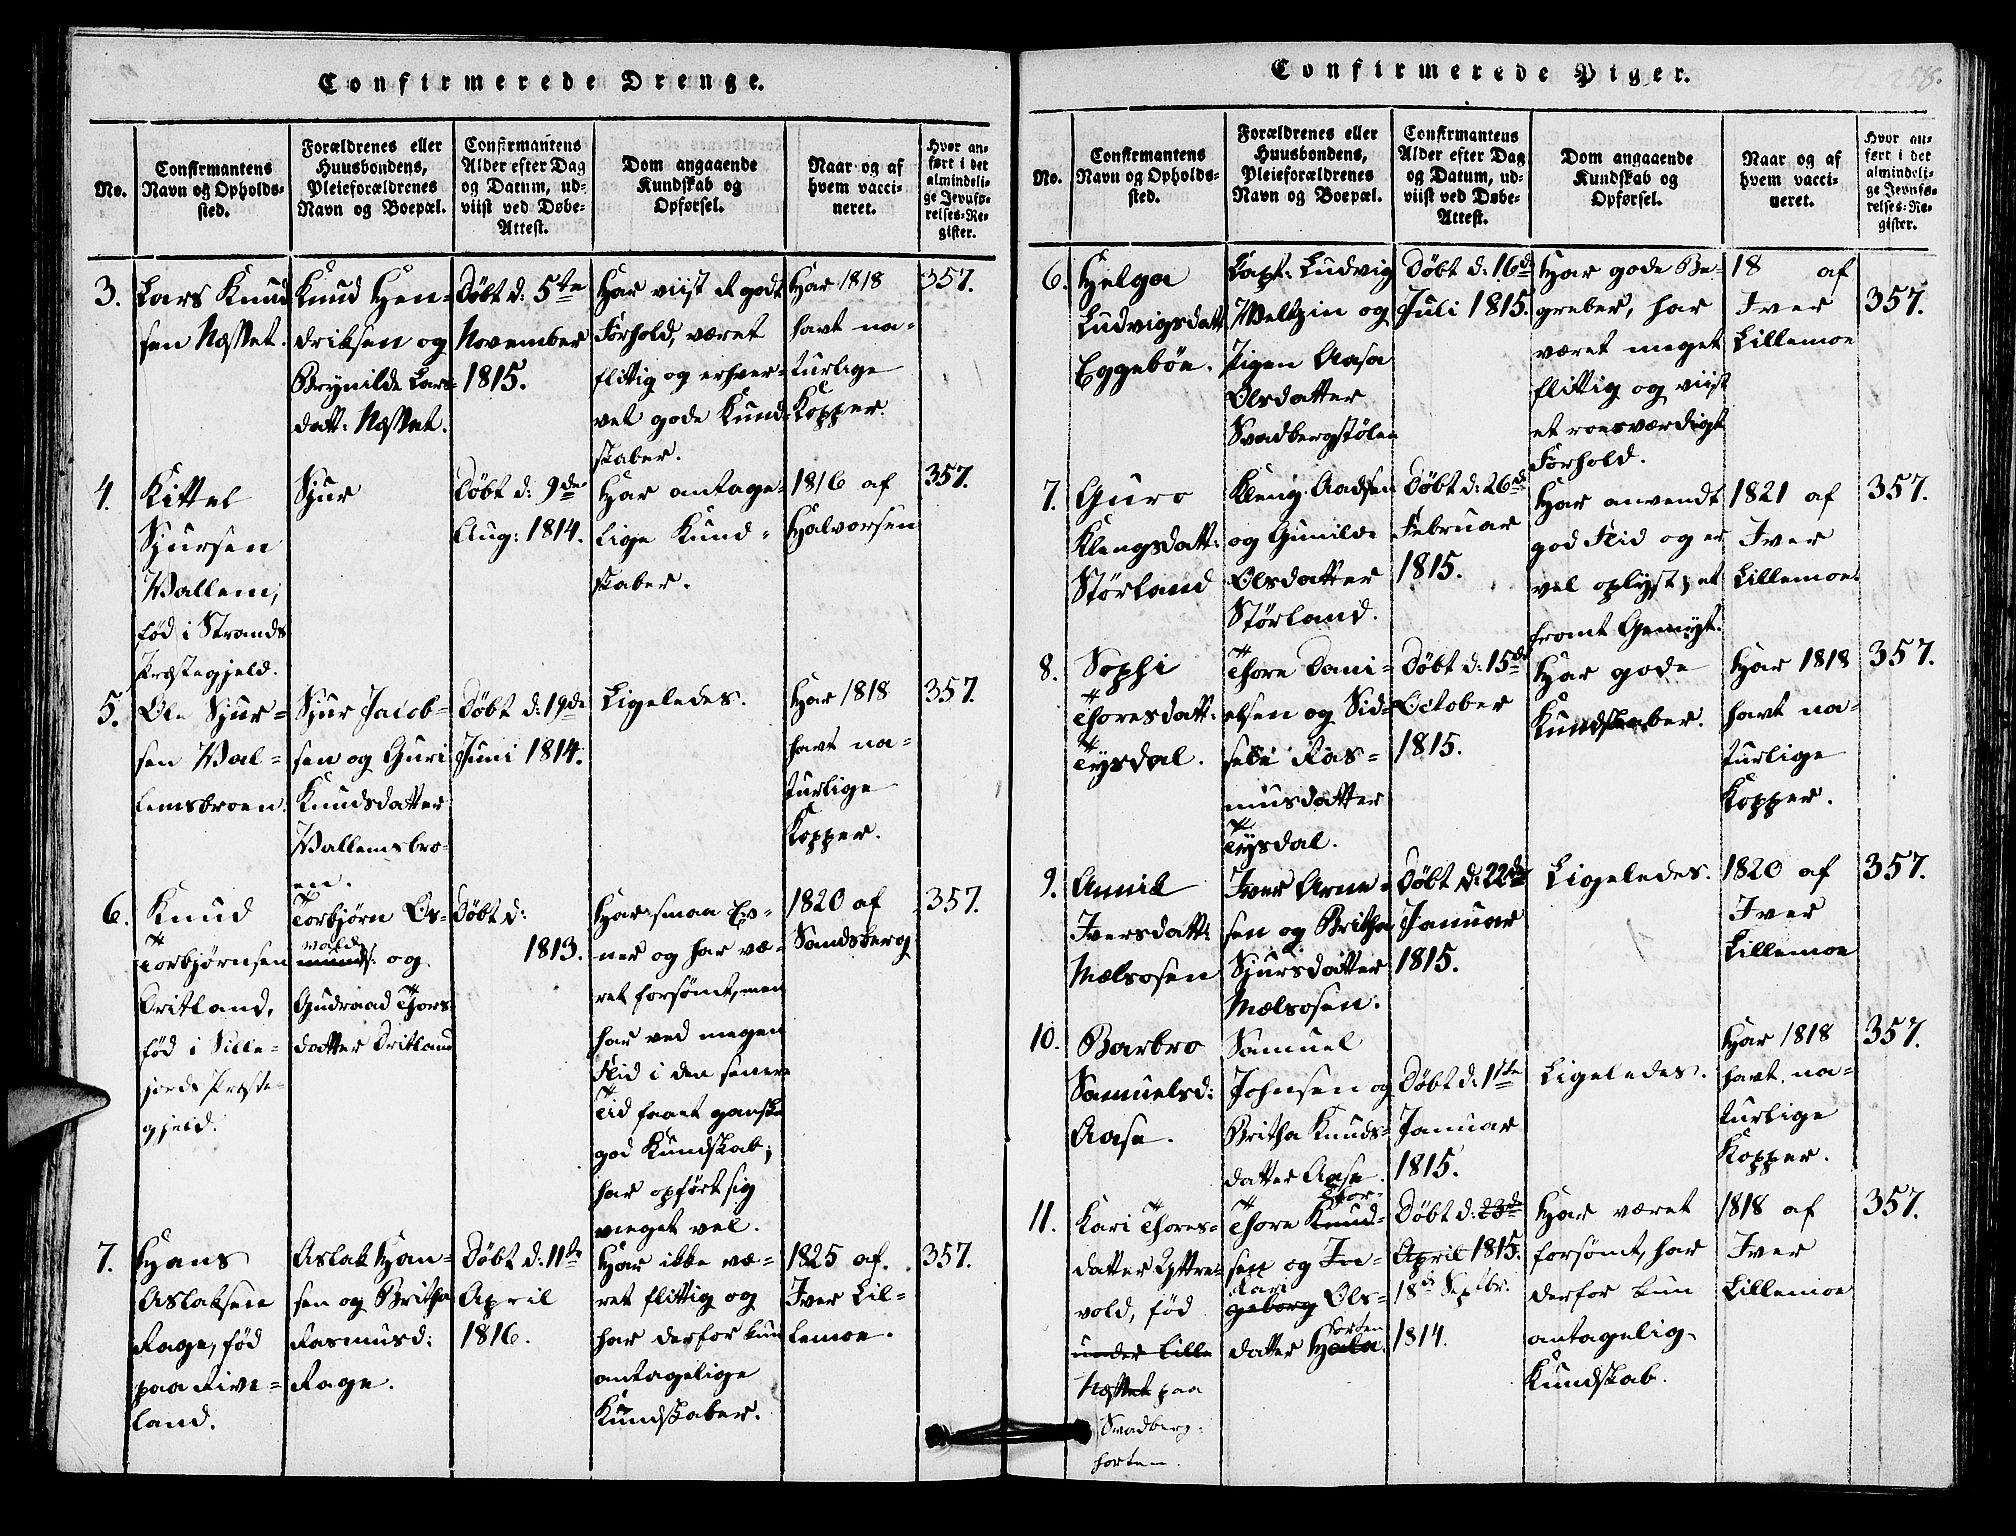 Confirmerede Drenge.
No.
Confirmantens
Navn og Opholds-
sted.
Forældrenes eller
Huusbondens,
Pleieforældrenes
Navn og Boepæl.
Confirmantens
Alder efter Dag
og Datum, ud-
viist ved Døbe-
Attest.
Dom angaaende
Kundskab og
Opførsel.
Naar og af
hvem vacci-
neret.
Hvor an-
ført i det
almindeli-
ge Jevnfø-
relses-Re-
gister.
3.
Lars Knud
sen Næsset.
Knud Hen-
driksen og
Brynilde Lars-
datt: Næsset.
Døbt d: 5te
November
1815.
Har viist et godt
Forhold, været
flittig og erhver-
vet gode Kund-
skaber.
Har 1818
havt na-
turlige
Kopper.
357.
4.
Kittel
Sjursen
Wallem,
fød i Strands
Præstegjeld.
Sjur
Døbt d: 9de
Aug: 1814.
Har antage-
lige Kund-
skaber.
1816 af
Halvorsen
357.
5.
Ole Sjur-
sen Wal-
lemsbroen.
Sjur Jacob-
sen og Guri
Knudsdatter
Wallemsbro-
en.
Døbt d: 19de
Juni 1814.
Ligeledes.
Har 1818
havt na-
turlige
Kopper.
357.
6.
Knud
Torbjørnsen
Tritland,
fød i Sille-
jords Præste-
gjeld.
Torbjørn Os-
vald
munds. og
Gudraad Thors-
datter Tritland
Døbt d:
1813.
Har smaa Ev-
ner og har væ-
ret forsømt, men
har ved megen
Flid i den senere
Tid faaet ganske
god Kundskab;
har opført sig
meget vel.
1820 af
Sandsberg
357.
7.
Hans
Aslaksen
Rage, fød
paa Five-
land.
Aslak Han-
sen og Britha
Rasmusd:
Rage.
Døbt d: 11te
April
1816.
Har ikke væ-
ret flittig og
har derfor kun
antagelige
Kundskaber.
1825 af
Iver Lil-
lemoe.
357.
Confirmerede Piger.
258.
No.
Confirmantens
Navn og Opholds-
sted.
Forældrenes eller
Huusbondens,
Pleieforældrenes
Navn og Boepæl.
Confirmantens
Alder efter Dag
og Datum, ud-
viist ved Døbe-
Attest.
Dom angaaende
Kundskab og
Opførsel.
Naar og af
hvem vacci-
neret.
Hvor an-
ført i det
almindeli-
ge Jevnfø-
relses-Re-
gister.
6.
Helga
Ludvigsdatt
Eggebøe.
Capt: Ludvig
Weltzin og
Pigen Aasa
Olsdatter
Svadbergstølen
Døbt d: 16de
Juli 1815.
Har gode Be-
greber, har
været meget
flittig og viist
et roesværdigt
Forhold.
18 af
Iver
Lillemoe
357.
7.
Guro
Klengsdatt:
Størland
Kleng Aadsen
og Gunilde
Olsdatter
Størland.
Døbt d: 26de
Februar
1815.
Har anvendt
god Flid og er
vel oplyst; et
fromt Gemyt.
1821 af
Iver
Lillemoe.
357.
8.
Sophi
Thoresdatt:
Tysdal.
Thore Dani-
elsen og Sid-
sele Ras-
musdatter
Tysdal.
Døbt d: 15de
October
1815.
Har gode
Kundskaber.
Har 1818
havt na-
turlige
Kopper.
357.
9.
Annik
Iversdatt:
Mælsosen
Iver Arne-
sen og Britha
Sjursdatter
Mælsosen.
Døbt d: 22de
Januar
1815.
Ligeledes.
1820 af
Iver
Lillemoe
357.
10.
Barbro
Samuelsd:
Aase.
Samuel
Johnsen og
Britha Knuds-
datter Aase.
Døbt d: 1ste
Januar
1815.
Ligeledes.
Har 1818
havt na-
turlige
Kopper.
357.
11.
Kari Thores-
datter Yttre-
vold, fød
under Lille
Næsset paa
Svadberg-
horten.
Thor-
Thore Knud-
sen og In-
Kari
geborg Ols-
horten
datter
Døbt d: 23de
April 1815.
18de Septbr.
1814.
Har været
forsømt, har
derfor kun
antagelig
Kundskab.
1818 af
Iver
Lillemoe
357.